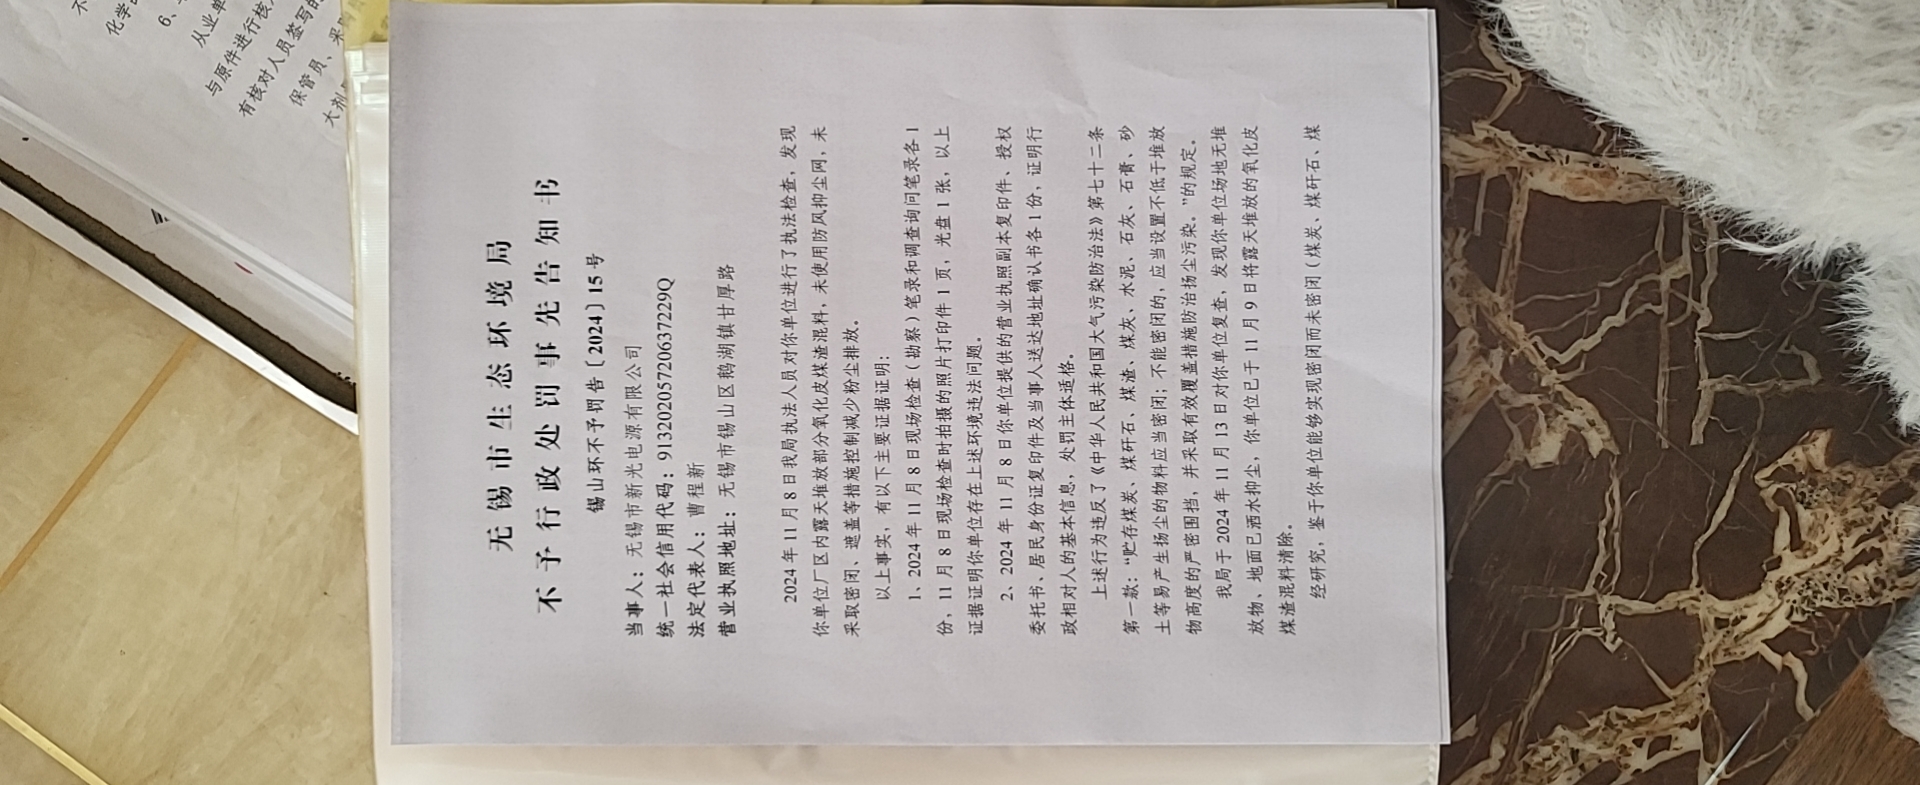 无锡市生态环境局
不予行政处罚事先告知书
锡山环不予罚告〔2024〕15号
当事人：无锡市新光电源有限公司
统一社会信用代码：91320205720637229Q
法定代表人：曹程新
营业执照地址：无锡市锡山区鹅湖镇甘厚路
2024年11月8日我局执法人员对你单位进行了执法检查，发现
你单位厂区内露天堆放部分氧化皮煤渣混料，未使用防风抑尘网，未
采取密闭、遮盖等措施控制减少粉尘排放。
以上事实，有以下主要证据证明：
1、2024年11月8日现场检查（勘察）笔录和调查询问笔录各1
份，11月8日现场检查时拍摄的照片打印件1页，光盘1张，以上
证据证明你单位存在上述环境违法问题。
2、2024年11月8日你单位提供的营业执照副本复印件、授权
委托书、居民身份证复印件及当事人送达地址确认书各1份，证明行
政相对人的基本信息，处罚主体适格。
上述行为违反了《中华人民共和国大气污染防治法》第七十二条
第一款：“贮存煤炭、煤矸石、煤渣、煤灰、水泥、石灰、石膏、砂
土等易产生扬尘的物料应当密闭；不能密闭的，应当设置不低于堆放
物高度的严密围挡，并采取有效覆盖措施防治扬尘污染。”的规定。
我局于2024年11月13日对你单位复查，发现你单位场地无堆
放物、地面已洒水抑尘，你单位已于11月9日将露天堆放的氧化皮
煤渣混料清除。
经研究，鉴于你单位能够实现密闭而未密闭（煤炭、煤矸石、煤
化学
6、
从业单
与原件进行核
有核对人员签写的
保管员、采购
大剂